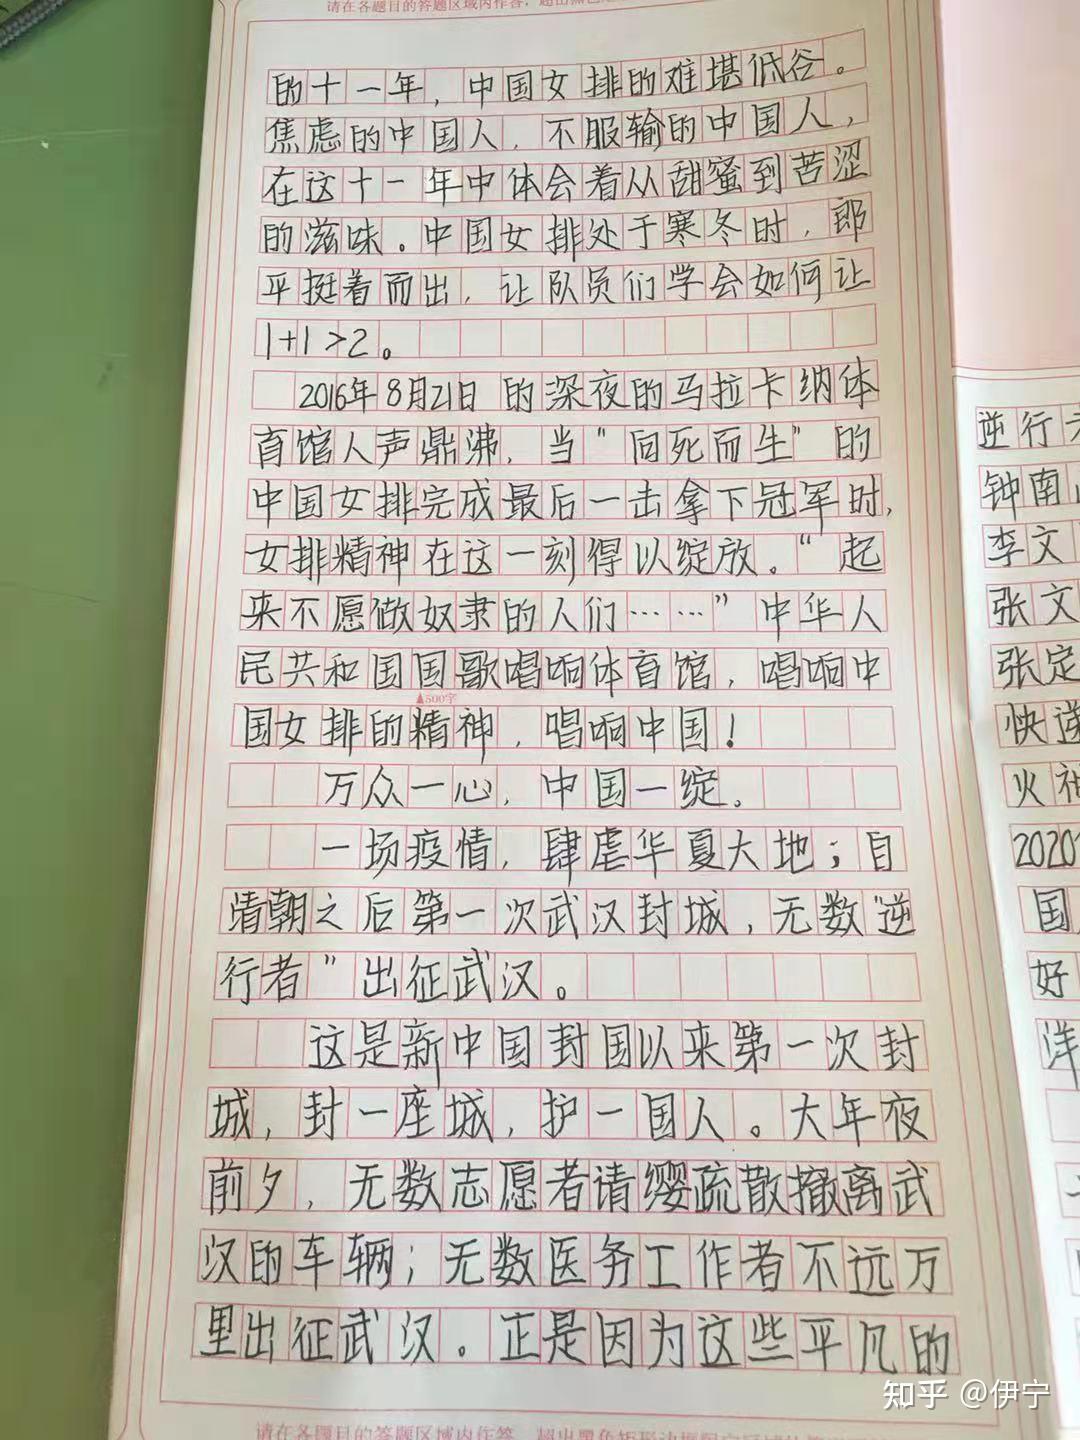 请在各题目的答题区域内作答，超出黑色
的十一年，中国女排的难堪低谷。
焦虑的中国人，不服输的中国人，
在这十一年中体会着从甜蜜到苦涩
的滋味。中国女排处于寒冬时，郎
平挺着而出，让队员们学会如何让
1+1>2。
2016年8月21日的深夜的马拉卡纳体
育馆人声鼎沸，当“向死而生”的
中国女排完成最后一击拿下冠军时，
女排精神在这一刻得以绽放。“起
来不愿做奴隶的人们……”中华人
民共和国国歌唱响体育馆，唱响中
▲500字
国女排的精神，唱响中国！
万众一心，中国一绽。
一场疫情，肆虐华夏大地；自
清朝之后第一次武汉封城，无数“逆
行者”出征武汉。
这是新中国封国以来第一次封
城，封一座城，护一国人。大年夜
前夕，无数志愿者请缨疏散撤离武
汉的车辆；无数医务工作者不远万
里出征武汉。正是因为这些平凡的
请在各题目的答题区域内作答，超出黑色矩形边框限定区域的
逆行
钟南
李文
张文
张定
快递
火神
2020
国
好
洋
知乎 @伊宁